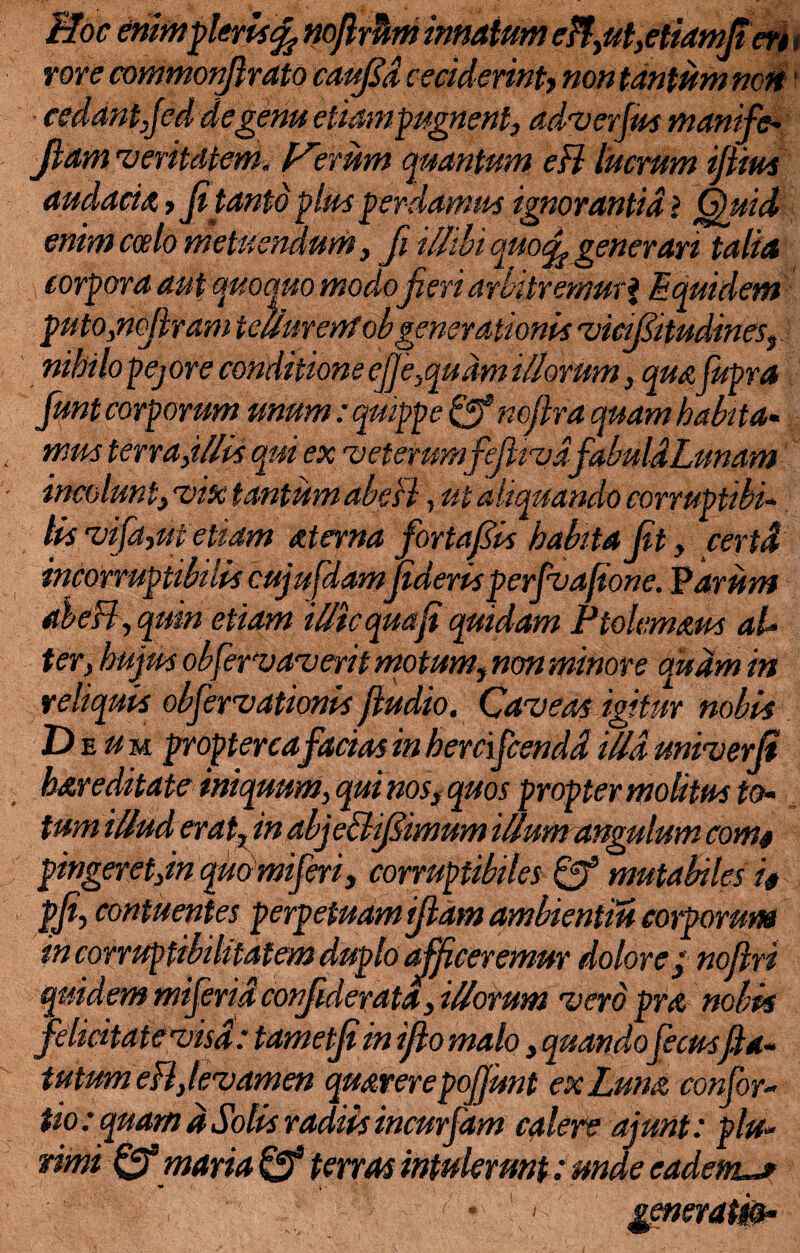 Hoc enim plerisq; nostrûm innatum est, ut, etiamsi er⸗
rore commonstrato caussâ ceciderint, non tantùm non
cedant, sed de genu etiam pugnent, adversus manife-
stam veritatem. Verùm quantum est lucrum istius
audaciæ, si tantò plus perdamus ignorantiâ? Quid
enim cœlo metuendum, si illîbi quoq; generari talia
corpora aut quoquo modo fieri arbitremur? Equidem
puto, nostram tellurem ob generationis vicißitudines,
nihilo pejore conditione esse, quàm illorum, quæ supra
sunt corporum unum: quippe & nostra quam habita-
mus terra, illis qui ex veterum festivâ fabulâ Lunam
incolunt, vix tantùm abest, ut aliquando corruptibi-
lis visa, ut etiam æterna fortaßis habita sit, certâ
incorruptibilis cujusdam sideris persvasione. Parùm
abest, quin etiam illîc quasi quidam Ptolemæus al-
ter, hujus observaverit motum, non minore quàm in
reliquis observationis studio. Caveas igitur nobis
DEUM propterea facias in herciscendâ illâ universi
hæreditate iniquum, qui nos, quos propter molitus to-
tum illud erat, in abjectißimum illum angulum com⸗
pingeret, in quo miseri, corruptibiles & mutabiles i⸗
psi, contuentes perpetuam istam ambientiũ corporum
incorruptibilitatem duplo afficeremur dolore; nostri
quidem miseriâ consideratâ, illorum verò præ nobis
felicitate visâ: tametsi in isto malo, quando secus sta-
tutum est, levamen quærere possunt ex Lunæ consor-
tio: quam à Solis radiis incursam calere ajunt: plu-
rimi & maria & terras intulerunt: unde eadem
generatio-